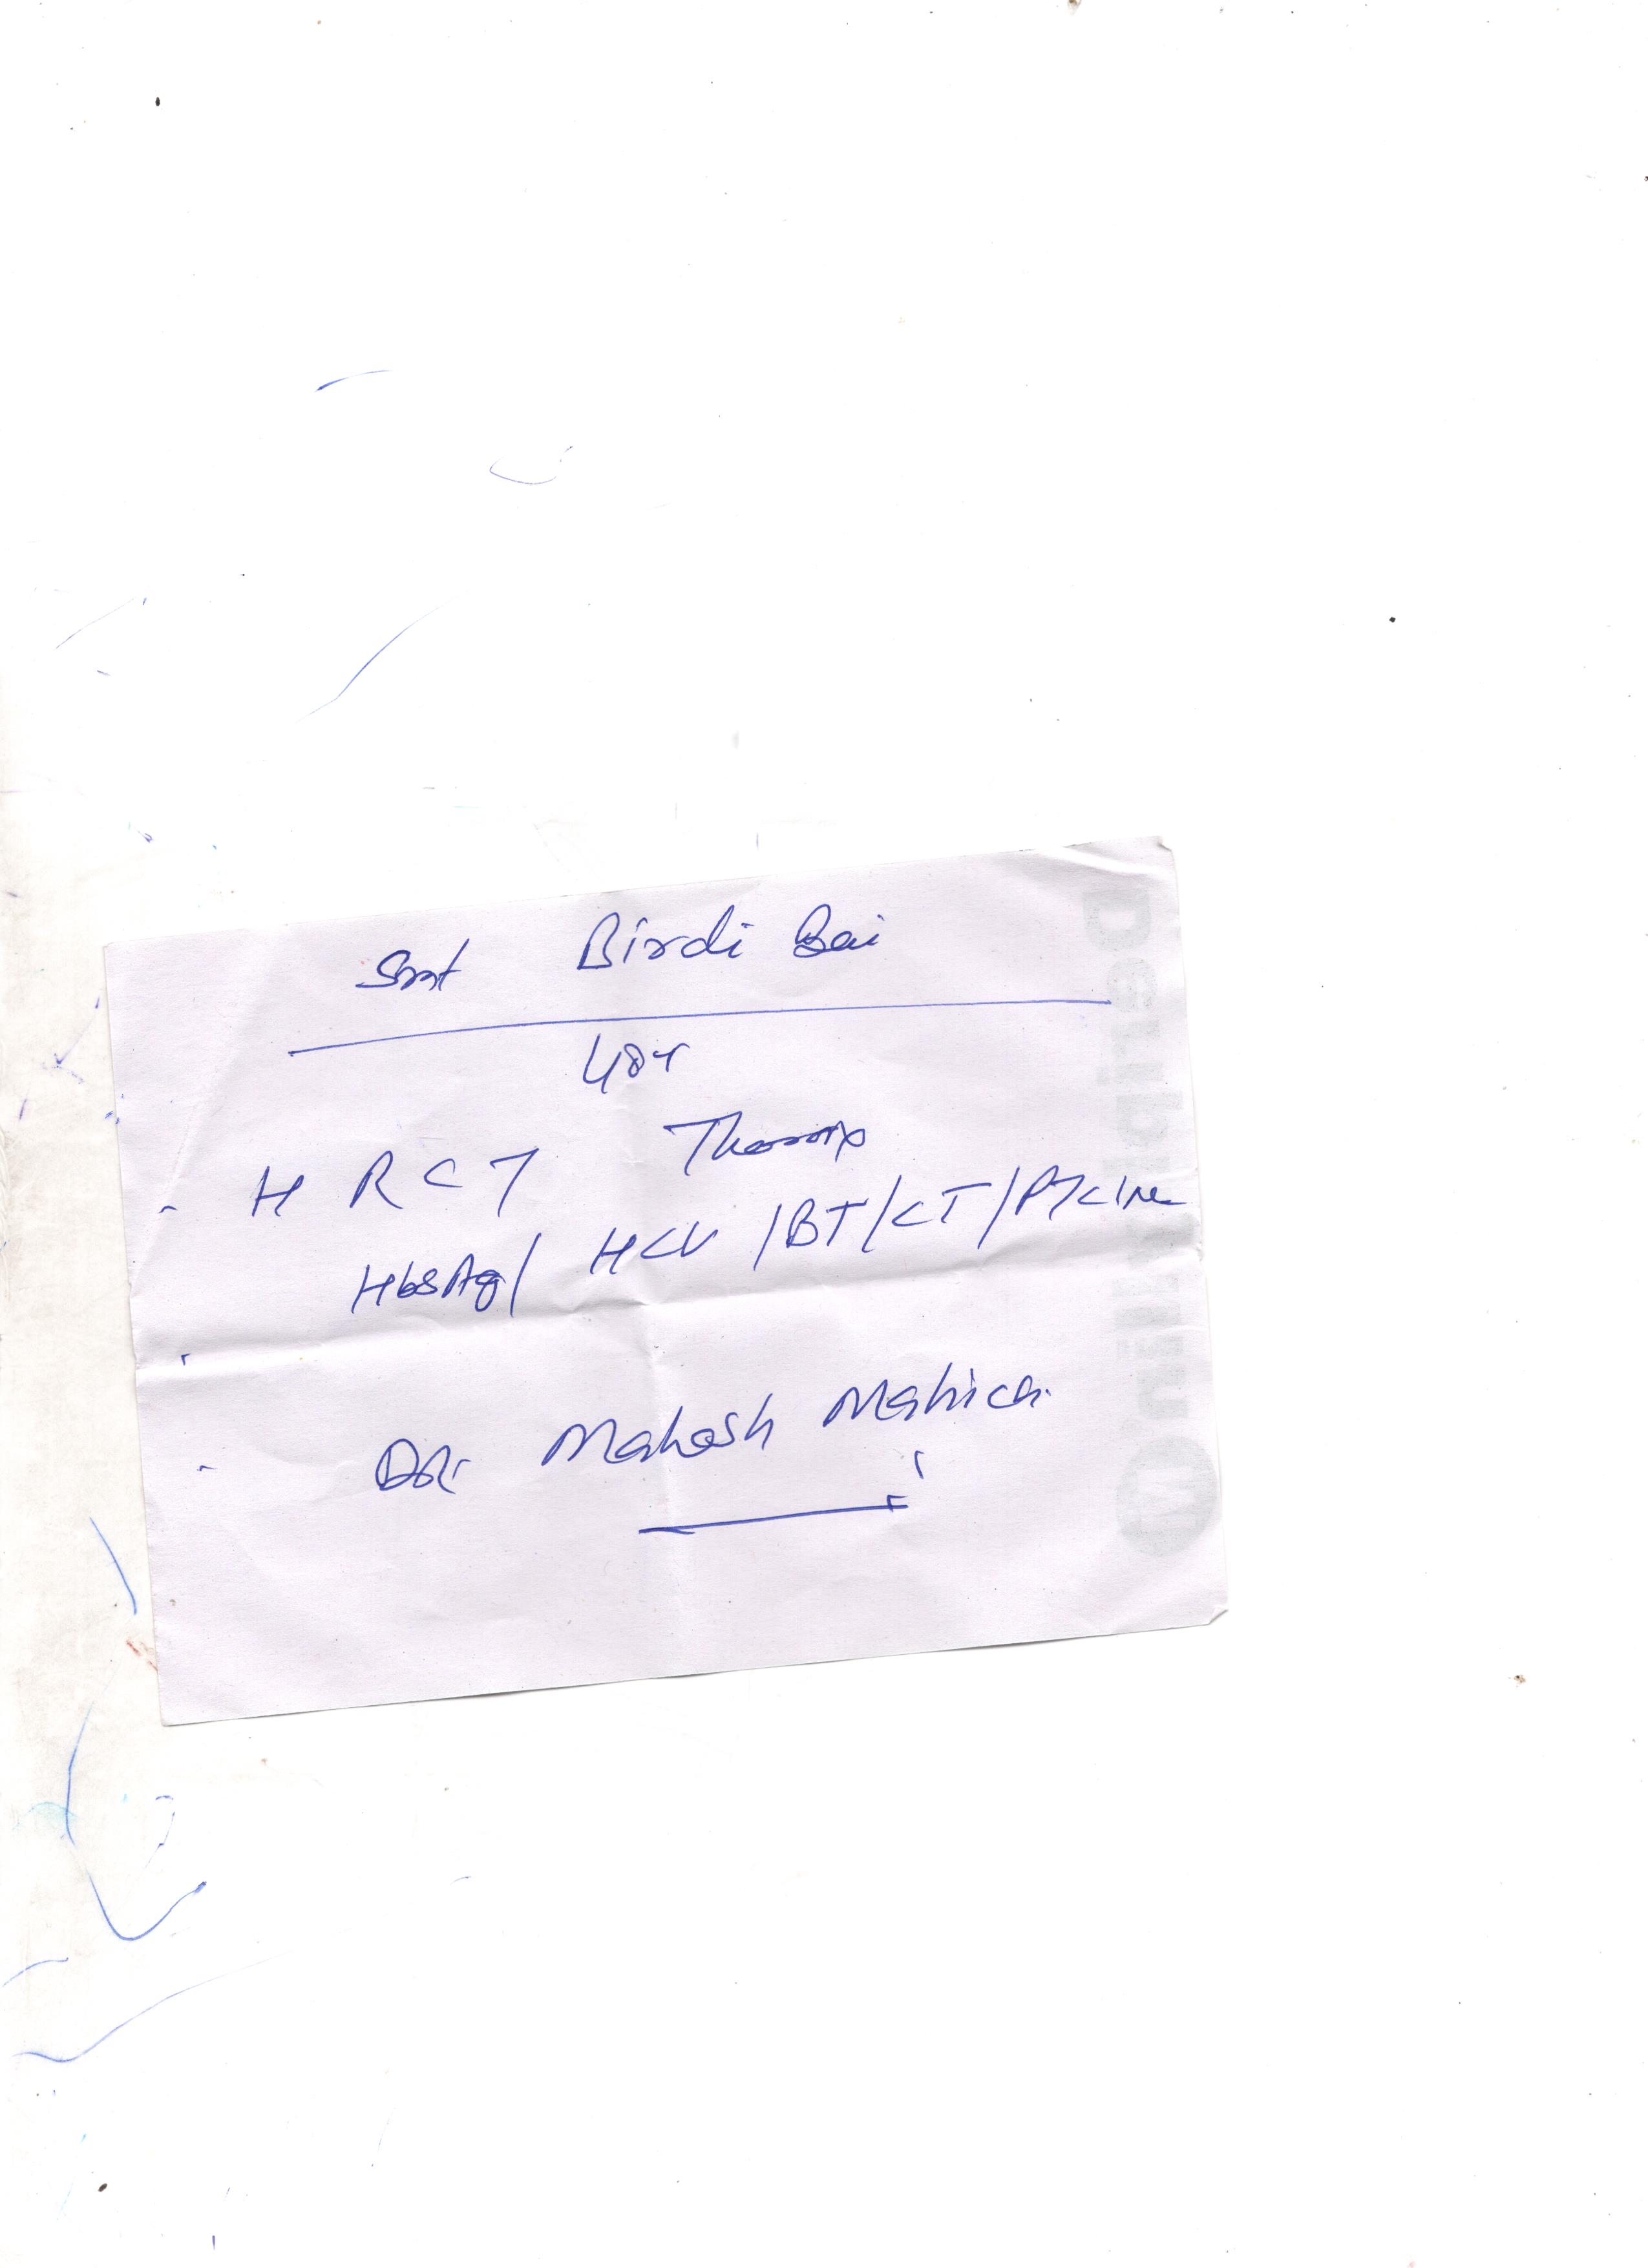 Smt Birdi Bai
48Y
H R C T Thorax
HbsAg/ HCV /BT/CT/PT/INR
DR. Mahesh